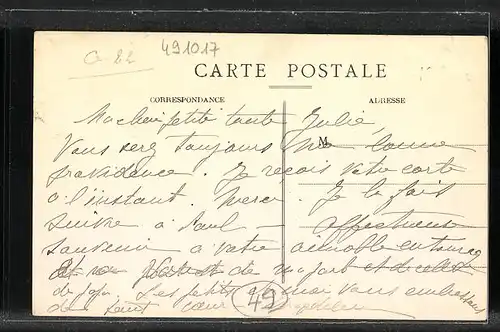 a 82
491017
CARTE POSTALE
CORRESPONDANCE ADRESSE
Ma chère petite tante Julie,
Vous serez toujours ma bonne
M
providence. Je reçois votre carte
à l'instant. Merci. Je la fais
suivre à Paul. Affectueux
souvenir à votre aimable entourage
de ma part et de celle
de Les petits et moi vous embrassons
de tout cœur
49